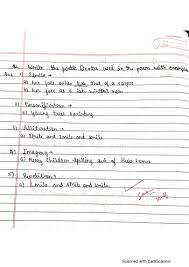 Q. Write the poetic Devices used in the poem with examples
Ans. 1) Simile →
a) her face ashen like that of a corpse
b) her face as a late winter's moon
2) Personification →
a) young trees sprinting
3) Alliteration →
a) Smile and smile and smile
4) Imagery →
a) Merry children spilling out of their homes
5) Repetition :
a) smile and smile and smile
Scanned with CamScanner